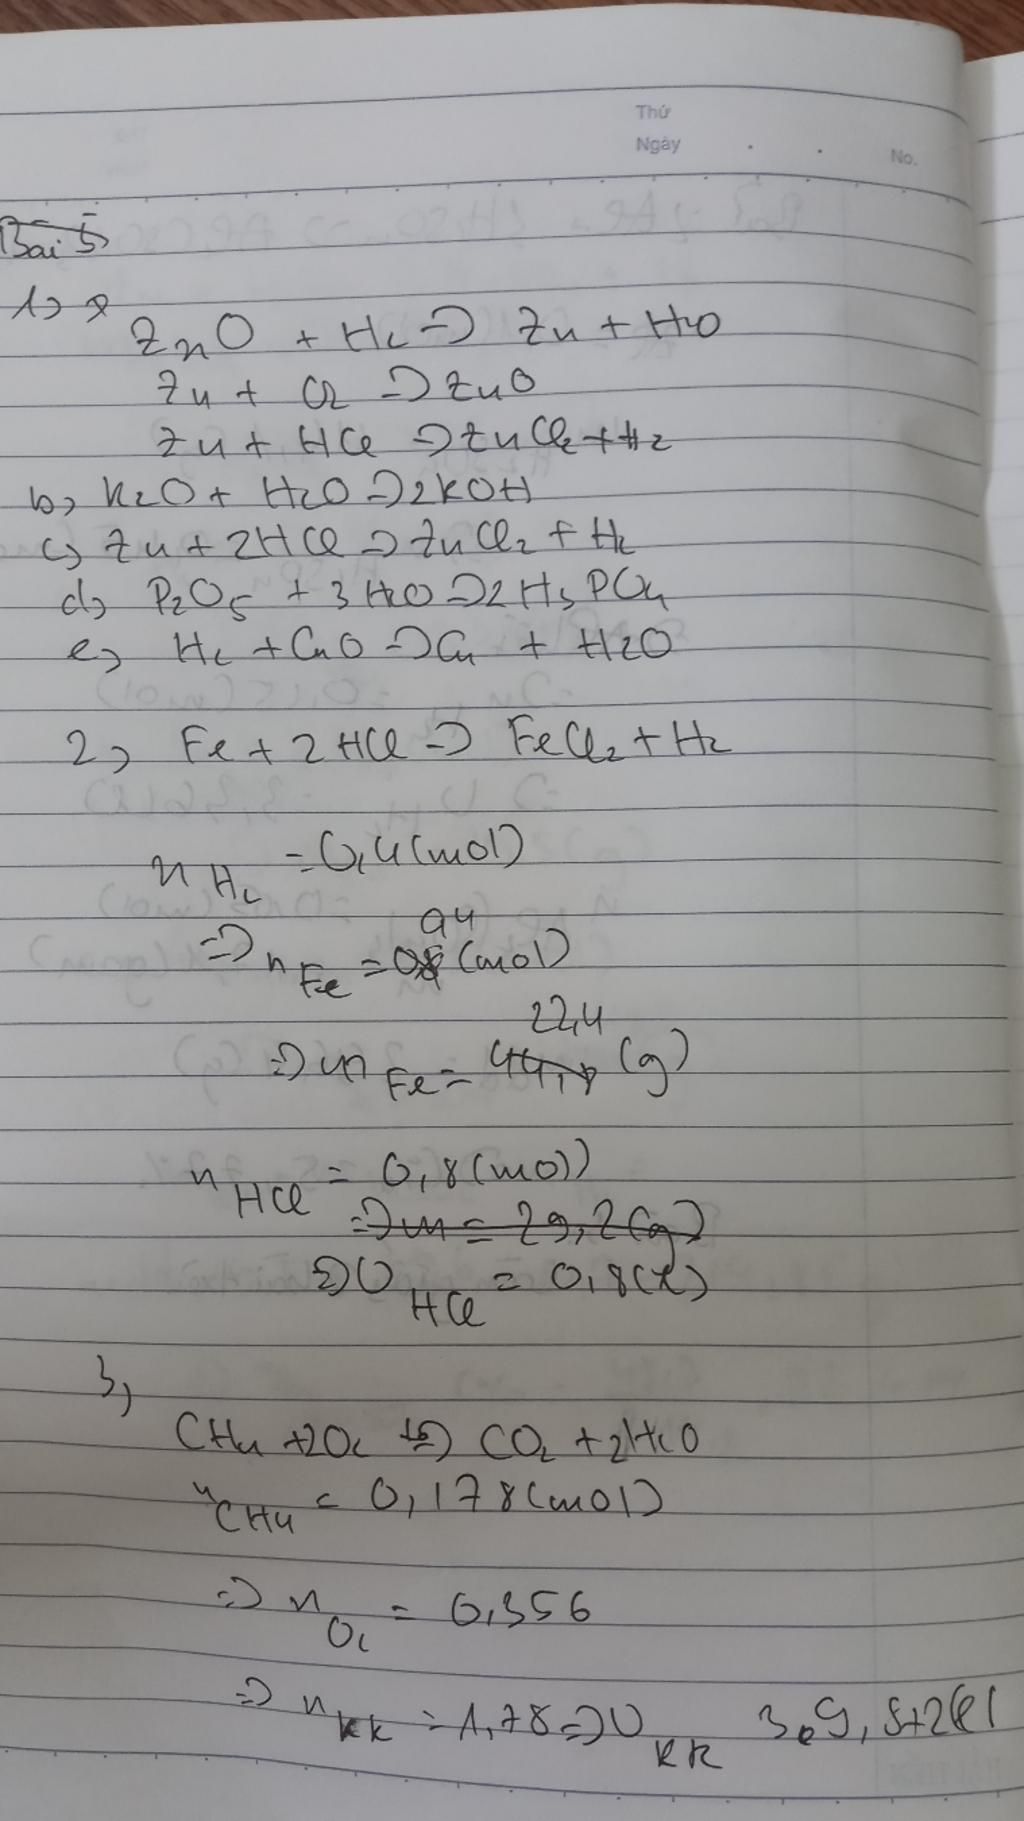 Thứ
Ngày . . No.
Bài 5
1)
ZnO + H2 => Zn + H2O
Zn + O2 => ZnO
Zn + HCl => ZnCl2 + H2
b, K2O + H2O => 2KOH
c) Zn + 2HCl => ZnCl2 + H2
d, P2O5 + 3H2O => 2H3PO4
e, H2 + CuO => Cu + H2O
2, Fe + 2HCl => FeCl2 + H2
n H2 = 0,4(mol)
=> n Fe = 0,4 (mol)
=> m Fe = 22,4 (g)
n HCl = 0,8(mol)
=> m = 29,2(g)
=> V HCl = 0,8(l)
3,
CH4 + 2O2 => CO2 + 2H2O
n CH4 = 0,178(mol)
=> n O2 = 0,356
=> n KK = 1,78 => V KK